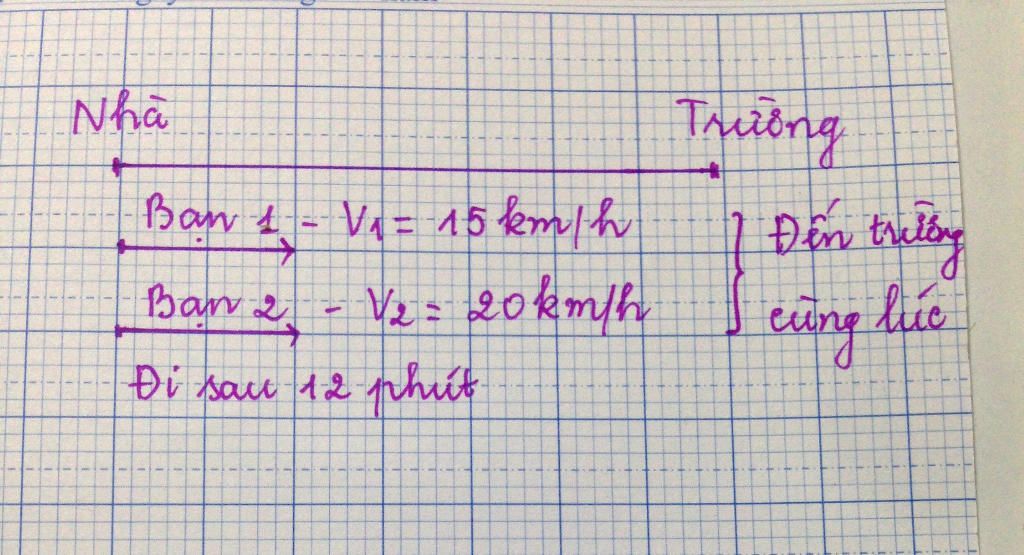 Nhà Trường
Bạn 1 - V1 = 15 km/h
Bạn 2 - V2 = 20 km/h
Đến trường
cùng lúc
Đi sau 12 phút